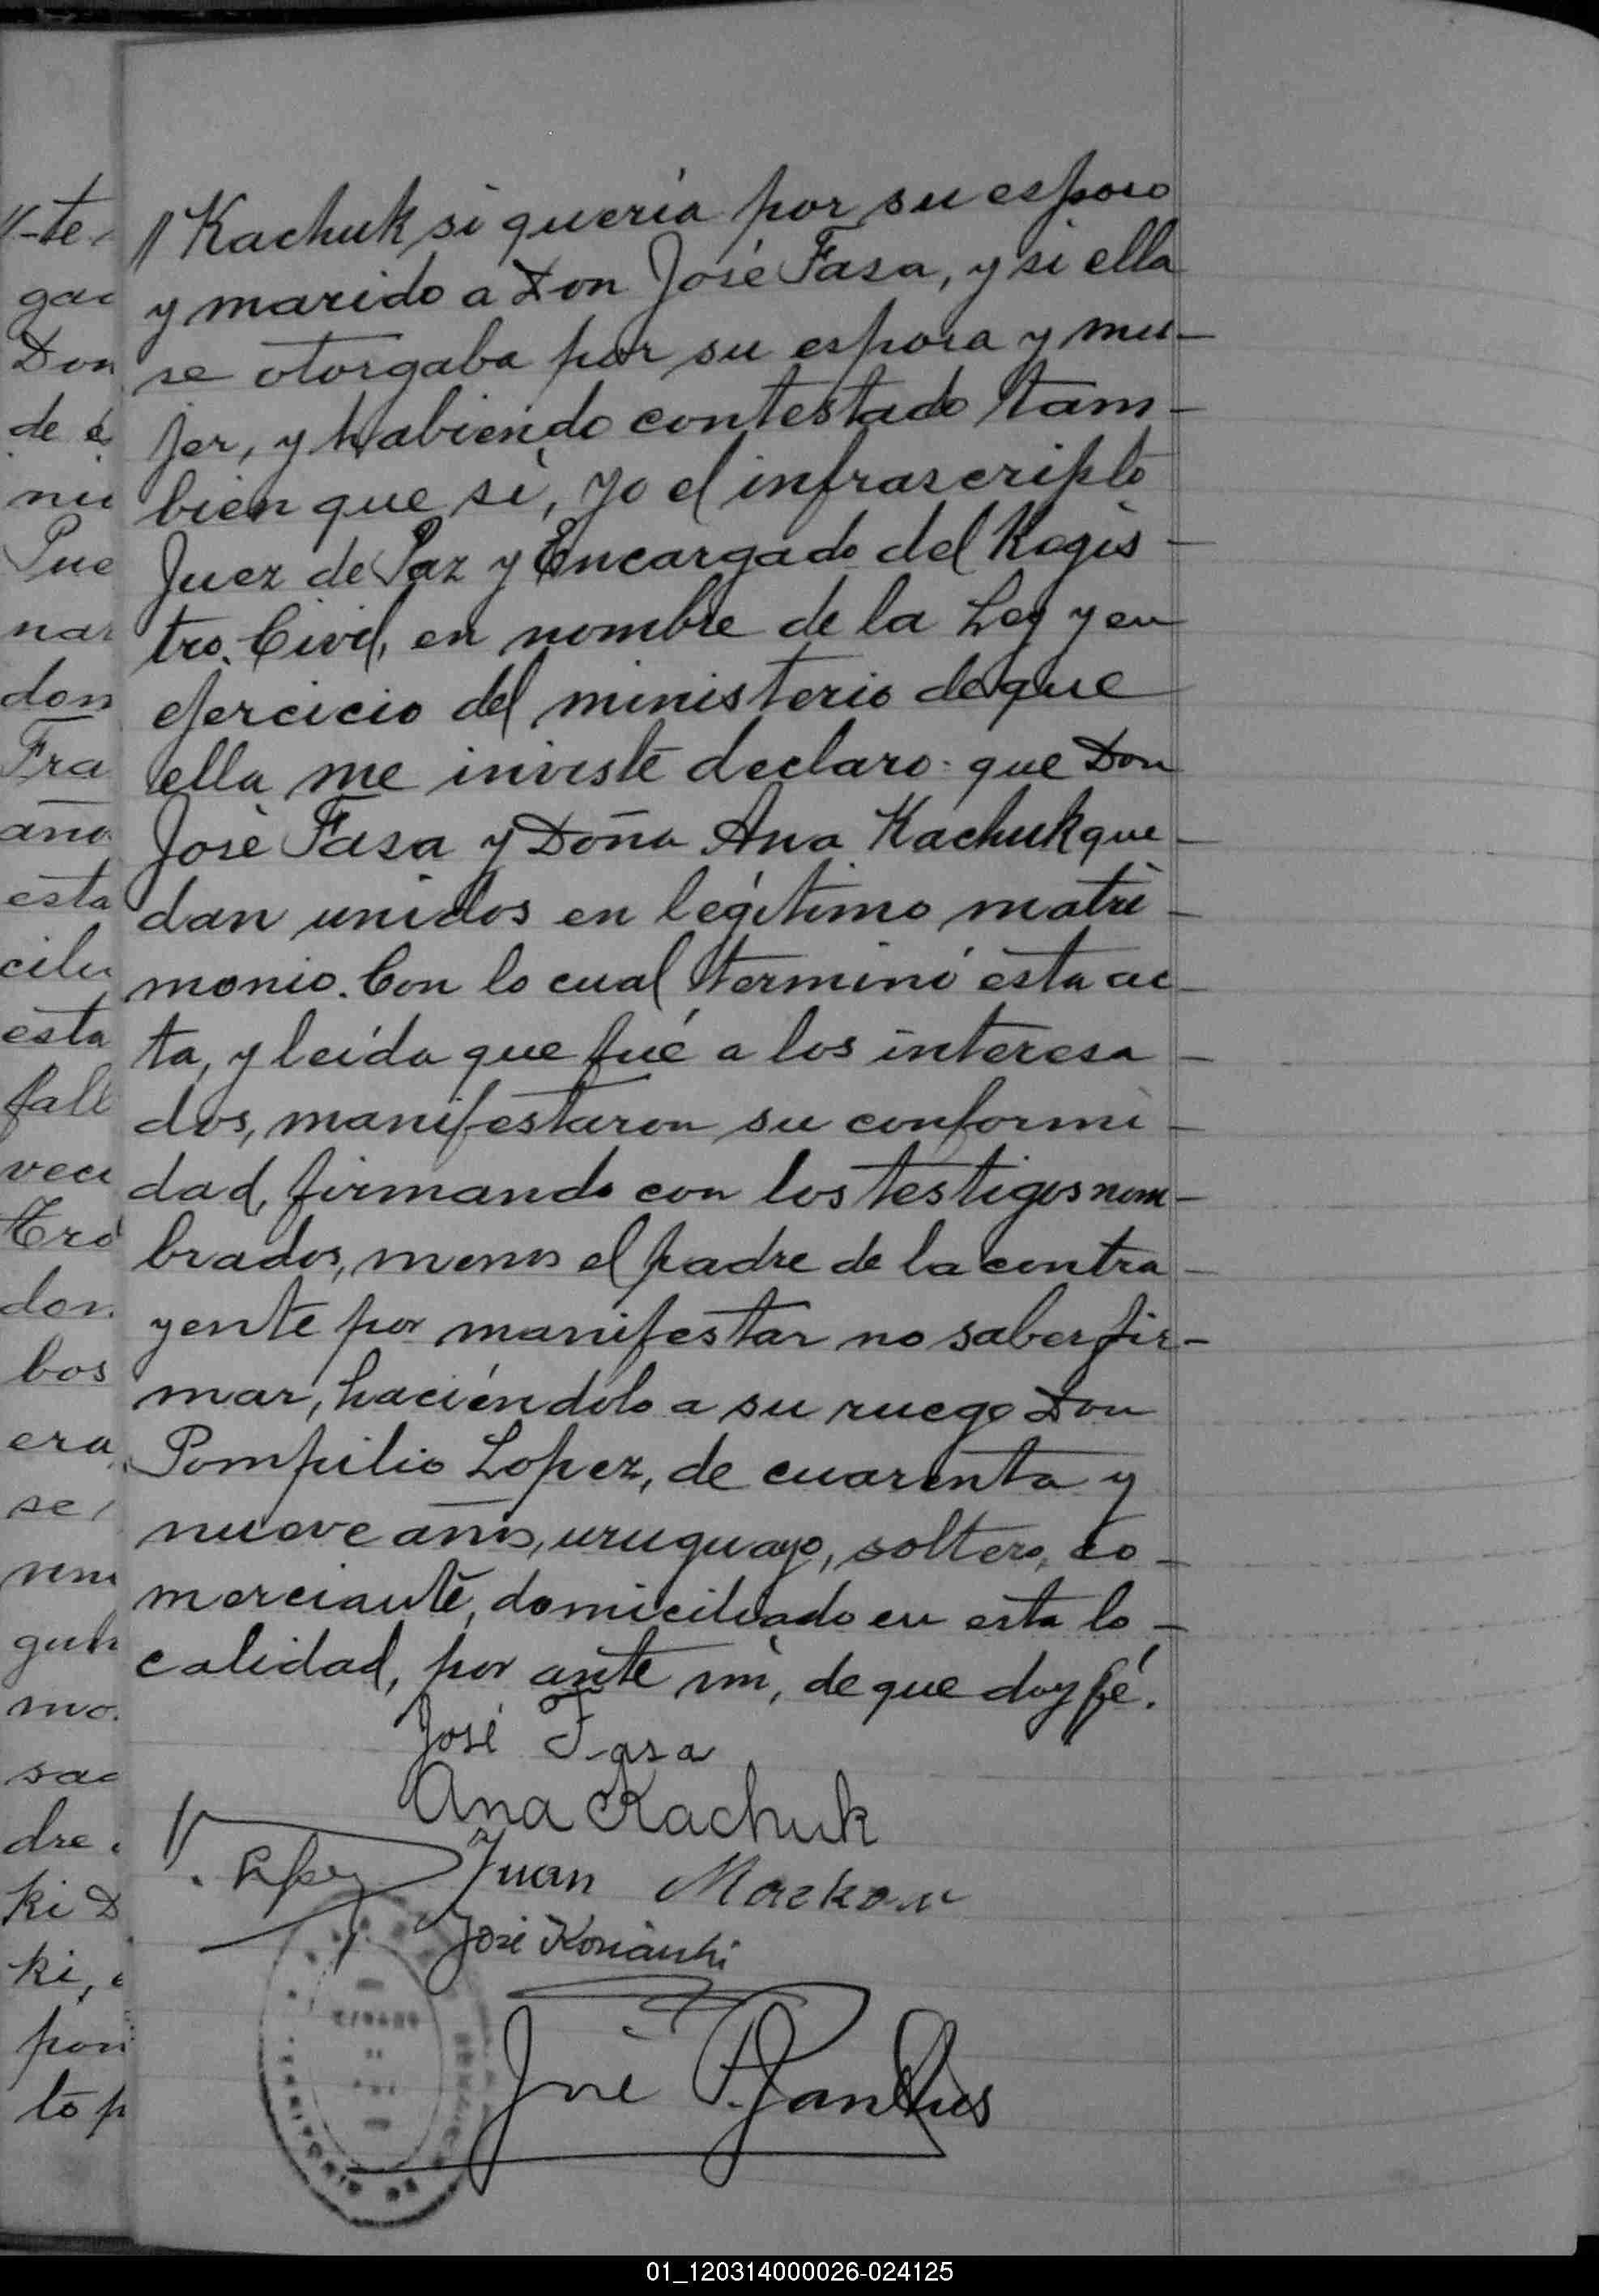 //-te
gac
Don
de
nu
Pue
nar
don
Fra
año
esta
esta
fall
veci
don
bos
era,
se
mo.
dre
ki D
ki,
por
to p
// Kachuk si quería por su esposo
y marido a Don José Fasa, y si ella
se otorgaba por su esposa y mu-
jer, y habiendo contestado tam-
bien que si, yo el infrascripto
Juez de Paz y Encargado del Regis-
tro Civil, en nombre de la Ley y en
ejercicio del ministerio de que
ella me inviste declaro: que Don
José Fasa y Doña Ana Kachuk que-
dan unidos en legítimo matri-
monio. Con lo cual terminó esta ac-
ta, y leída que fué a los interesa-
dos, manifestaron su conformi-
dad, firmando con los testigos nom-
brados, menos el padre de la contra-
yente por manifestar no saber fir-
mar, haciéndolo a su ruego Don
Pompilio Lopez, de cuarenta y
nueve años, uruguayo, soltero, co-
merciante, domiciliado en esta lo-
calidad, por ante mi, de que doy fé.
José Fasa
Ana Kachuk
Lopez Juan
José
José
TERRITORIO DE
01_120314000026-024125